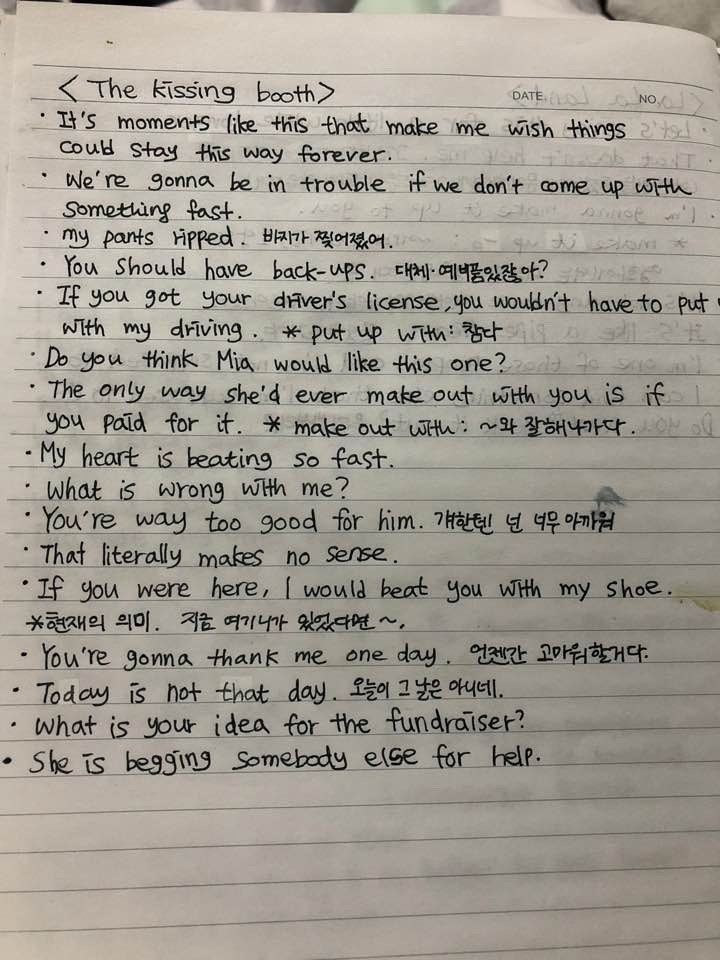 < The kissing booth>
DATE. NO.
· It's moments like this that make me wish things
could stay this way forever.
· We're gonna be in trouble if we don't come up with
something fast.
· my pants ripped. 바지가 찢어졌어.
· You should have back-ups. 대체·예비품있잖아?
· If you got your driver's license, you wouldn't have to put
with my driving. * put up with: 참다
· Do you think Mia would like this one?
· The only way she'd ever make out with you is if
you paid for it. * make out with: ~와 잘해나가다.
· My heart is beating so fast.
· What is wrong with me?
· You're way too good for him. 걔한텐 넌 너무 아까워
· That literally makes no sense.
· If you were here, I would beat you with my shoe.
*현재의 의미. 지금 여기 니가 있었다면 ~.
· You're gonna thank me one day. 언젠간 고마워할거다.
· Today is not that day. 오늘이 그 날은 아니네.
· What is your idea for the fundraiser?
· She is begging somebody else for help.